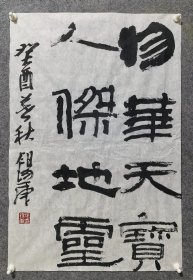 物華天寶
人傑地靈
癸酉春秋